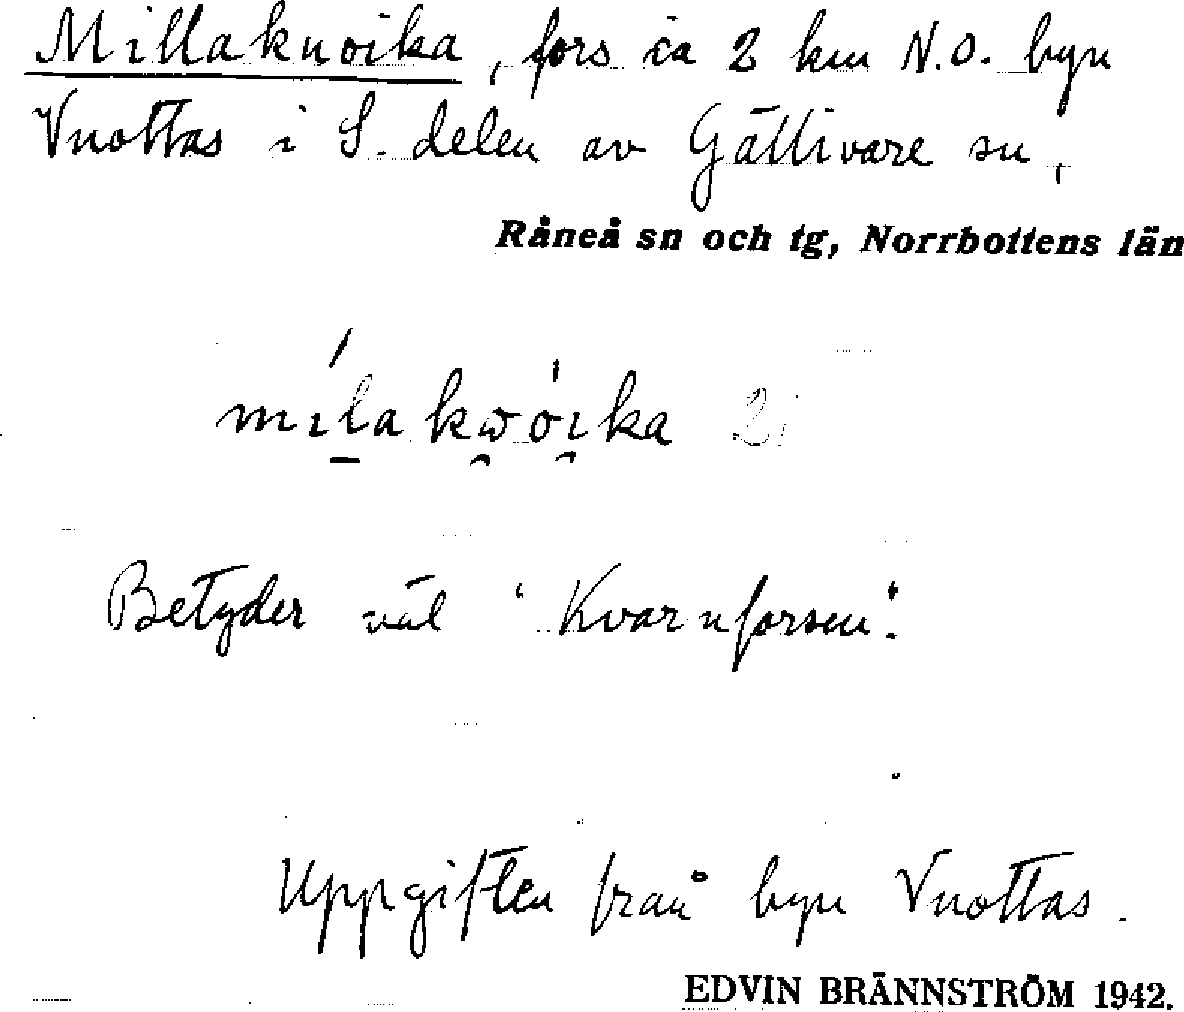 Millakuoika, fors ca 2 km N.O. byn
Vuottas i S. delen av Gällivare sn,
Råneå sn och tg, Norrbottens län
mı́la kwóika 2
Betyder väl 'Kvarnforsen'.
Uppgiften från byn Vuottas.
EDVIN BRÄNNSTRÖM 1942.